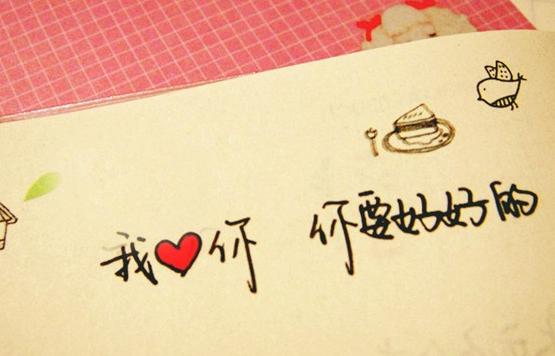 我❤你 你要好好的